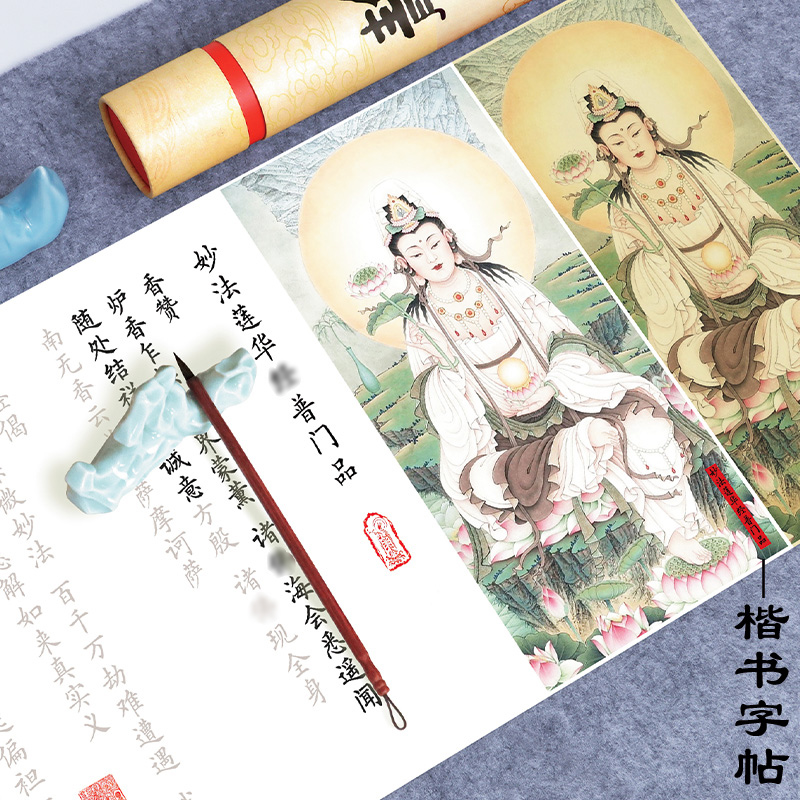 妙法莲华 普门品
香赞
炉香乍 界蒙薰 诸 海会悉遥闻
随处结祥 诚意方殷 诸 现全身
南无香云 萨摩诃萨
偈
微妙法 百千万劫难遭遇
解如来真实义
偏袒
妙法莲华经普门品
楷书字帖